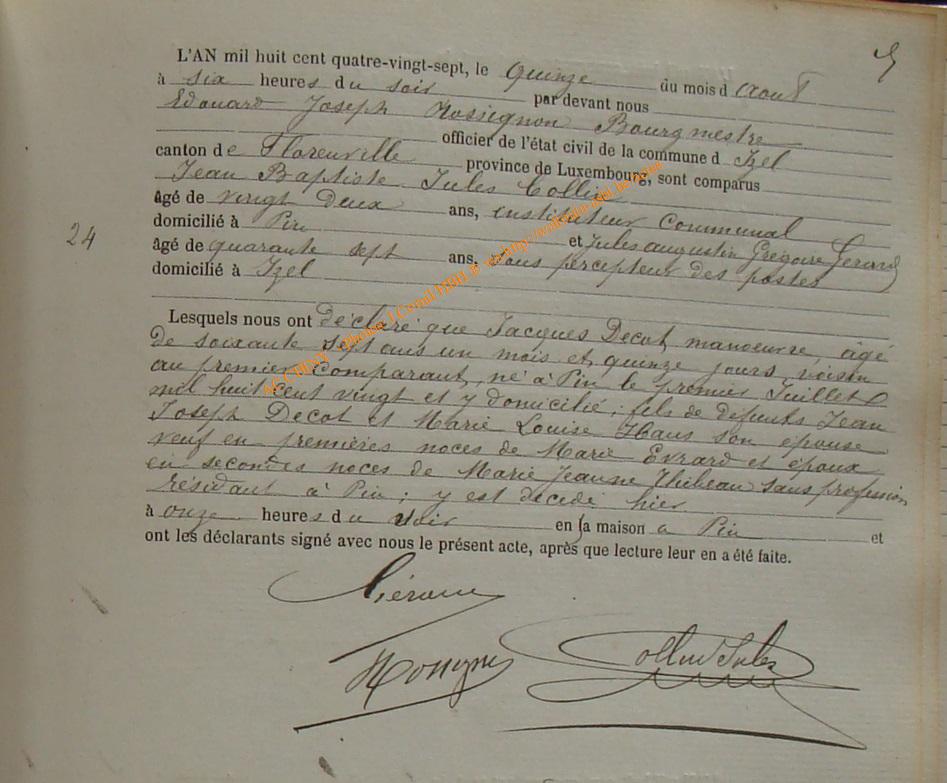 5
L'AN mil huit cent quatre-vingt-sept, le quinze du mois d'aout
à six heures du soir par devant nous
Edouard Joseph Rossignon Bourgmestre
officier de l'état civil de la commune d'Izel
canton de Florenville province de Luxembourg, sont comparus
Jean Baptiste Jules Collin
âgé de vingt deux ans, instituteur communal
domicilié à Pin et Jules augustin Grégoire Gerard
24
âgé de quarante sept ans, sous percepteur des postes
domicilié à Izel
Lesquels nous ont déclaré que Jacques Decot, manoeuvre, âgé
de soixante sept ans un mois et quinze jours, voisin
au premier comparant, né à Pin le premier Juillet
mil huit cent vingt et y domicilié; fils de defunts Jean
Joseph Decot et Marie Louise Haus son épouse
veuf en premières noces de Marie Evrard et époux
en secondes noces de Marie Jeanne Thibeau sans profession
résidant à Pin; y est décédé hier
à onze heures du soir en sa maison a Pin et
ont les déclarants signé avec nous le présent acte, après que lecture leur en a été faite.
Collin Jules